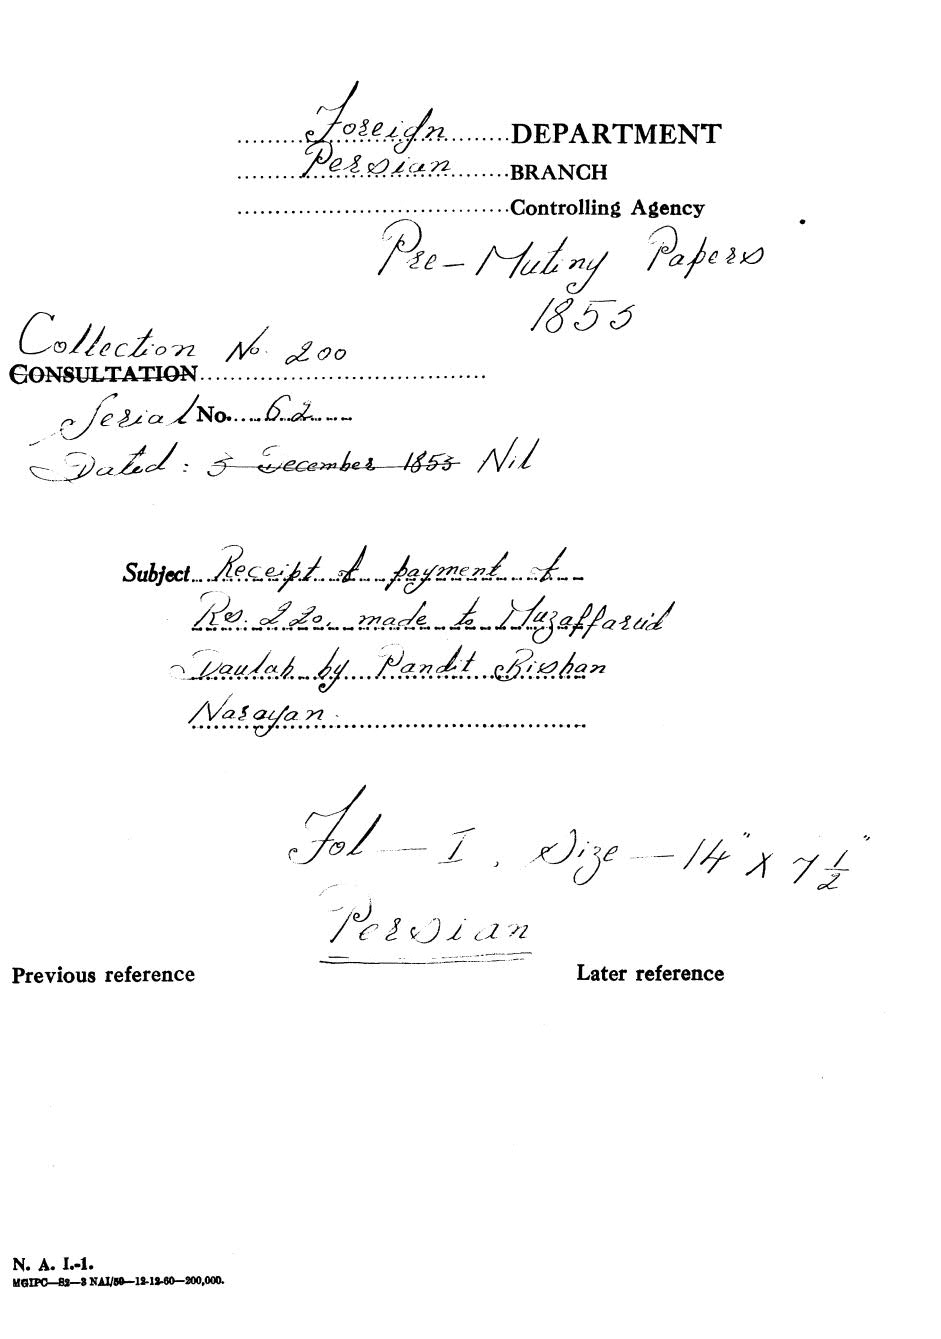 Foreign DEPARTMENT
Persian BRANCH
Controlling Agency
Pre-Mutiny Papers
1853
Collection No. 200
CONSULTATION
Serial No. 62
Dated : 5 December 1853 Nil
Subject Receipt of payment of
Rs. 220, made to Muzaffarud
Daulah by Pandit Bishan
Narayan.
Fol — I, Size — 14" X 7 1/2"
Persian
Previous reference Later reference
N. A. I.-1.
MGIPC—S2—3 NAI/59—12-12-60—200,000.